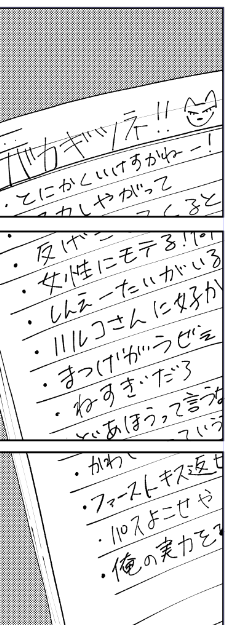 バカギツネ!!
・とにかくいけすかねー!
カしやがって
てくると
・反げ
・女性にモテる!?
・しんえーたいがいる
・ハルコさんに好か
・まつげがうぜえ
・ねすぎだろ
どあほうって言うな
ていう
・かわ
・ファーストキス返せ
・パスよこせや
・俺の実力を